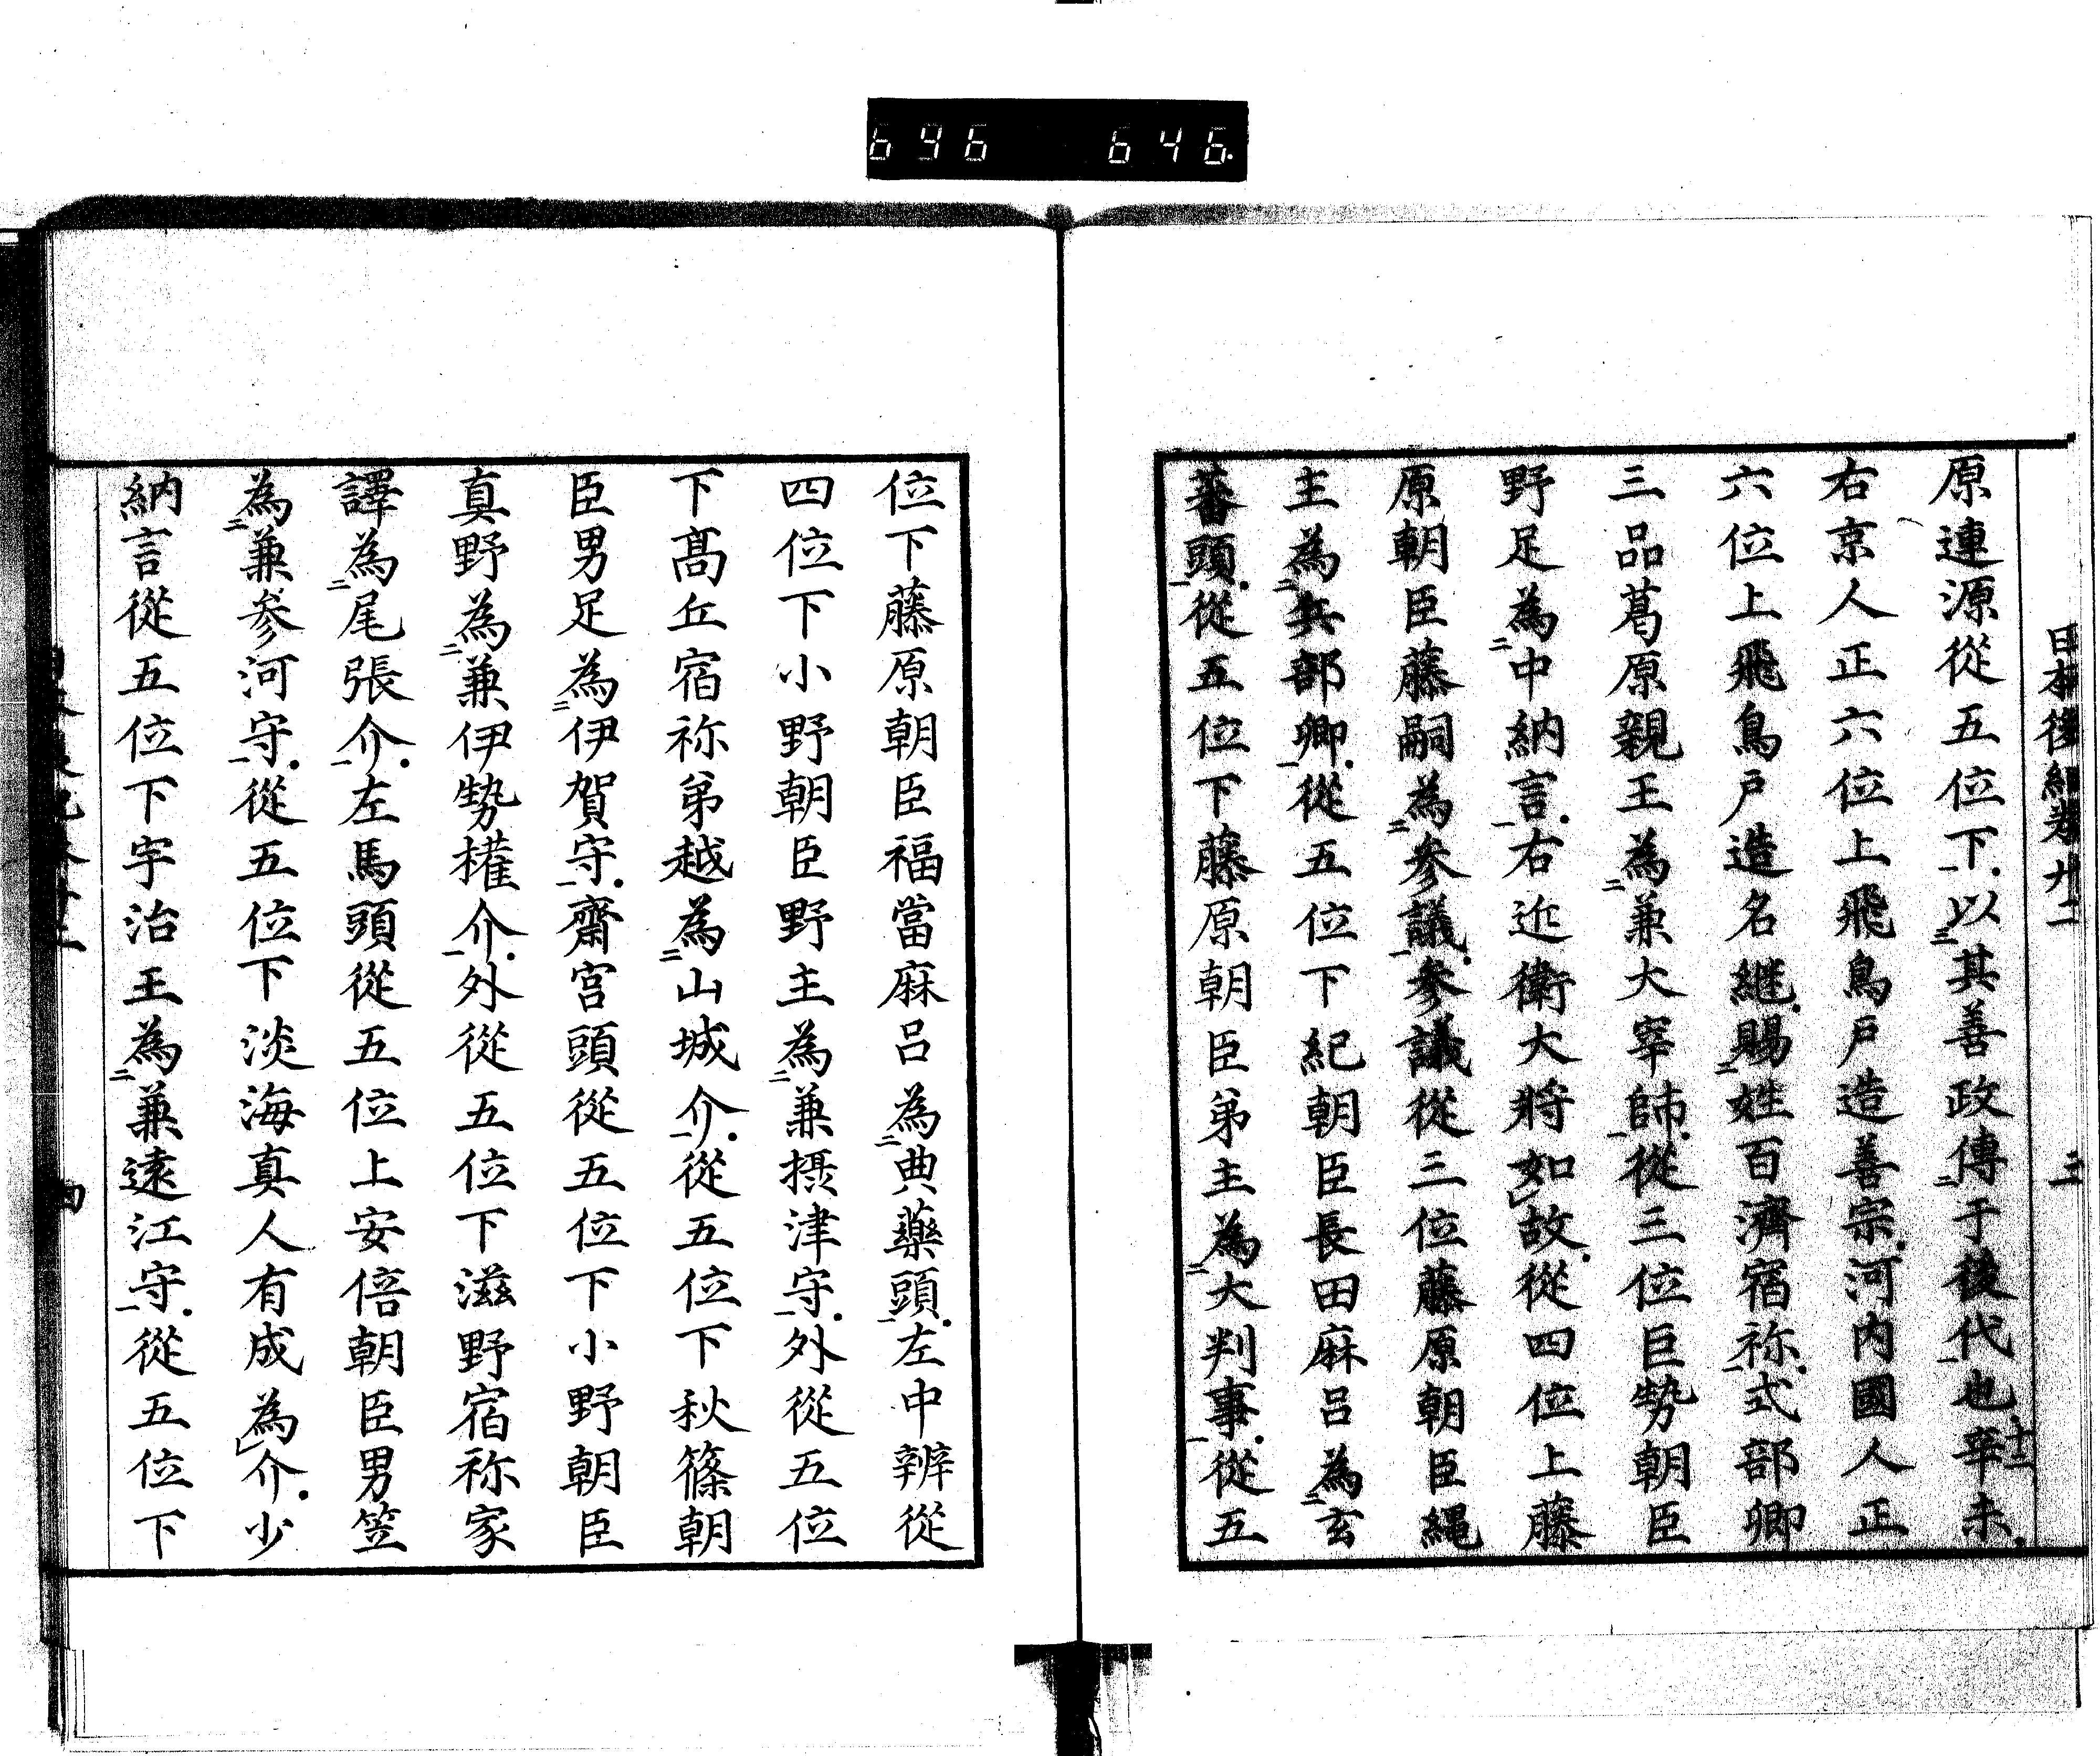 646 646
日本後紀卷廿二 三
原連源從五位下以其善政傳于後代也辛未十二
右京人正六位上飛鳥戸造善宗河内國人正
六位上飛鳥戸造名継賜姓百濟宿祢式部卿
三品葛原親王為兼大宰帥從三位巨勢朝臣
野足為中納言右近衛大將如故從四位上藤
原朝臣藤嗣為参議参議從三位藤原朝臣縄
主為兵部卿從五位下紀朝臣長田麻呂為玄
蕃頭從五位下藤原朝臣弟主為大判事從五
位下藤原朝臣福當麻呂為典藥頭左中辨從
四位下小野朝臣野主為兼摂津守外從五位
下髙丘宿祢弟越為山城介從五位下秋篠朝
臣男足為伊賀守齋宮頭從五位下小野朝臣
真野為兼伊勢權介外從五位下滋野宿祢家
譯為尾張介左馬頭從五位上安倍朝臣男笠
為兼参河守從五位下淡海真人有成為介少
納言從五位下宇治王為兼遠江守從五位下
四